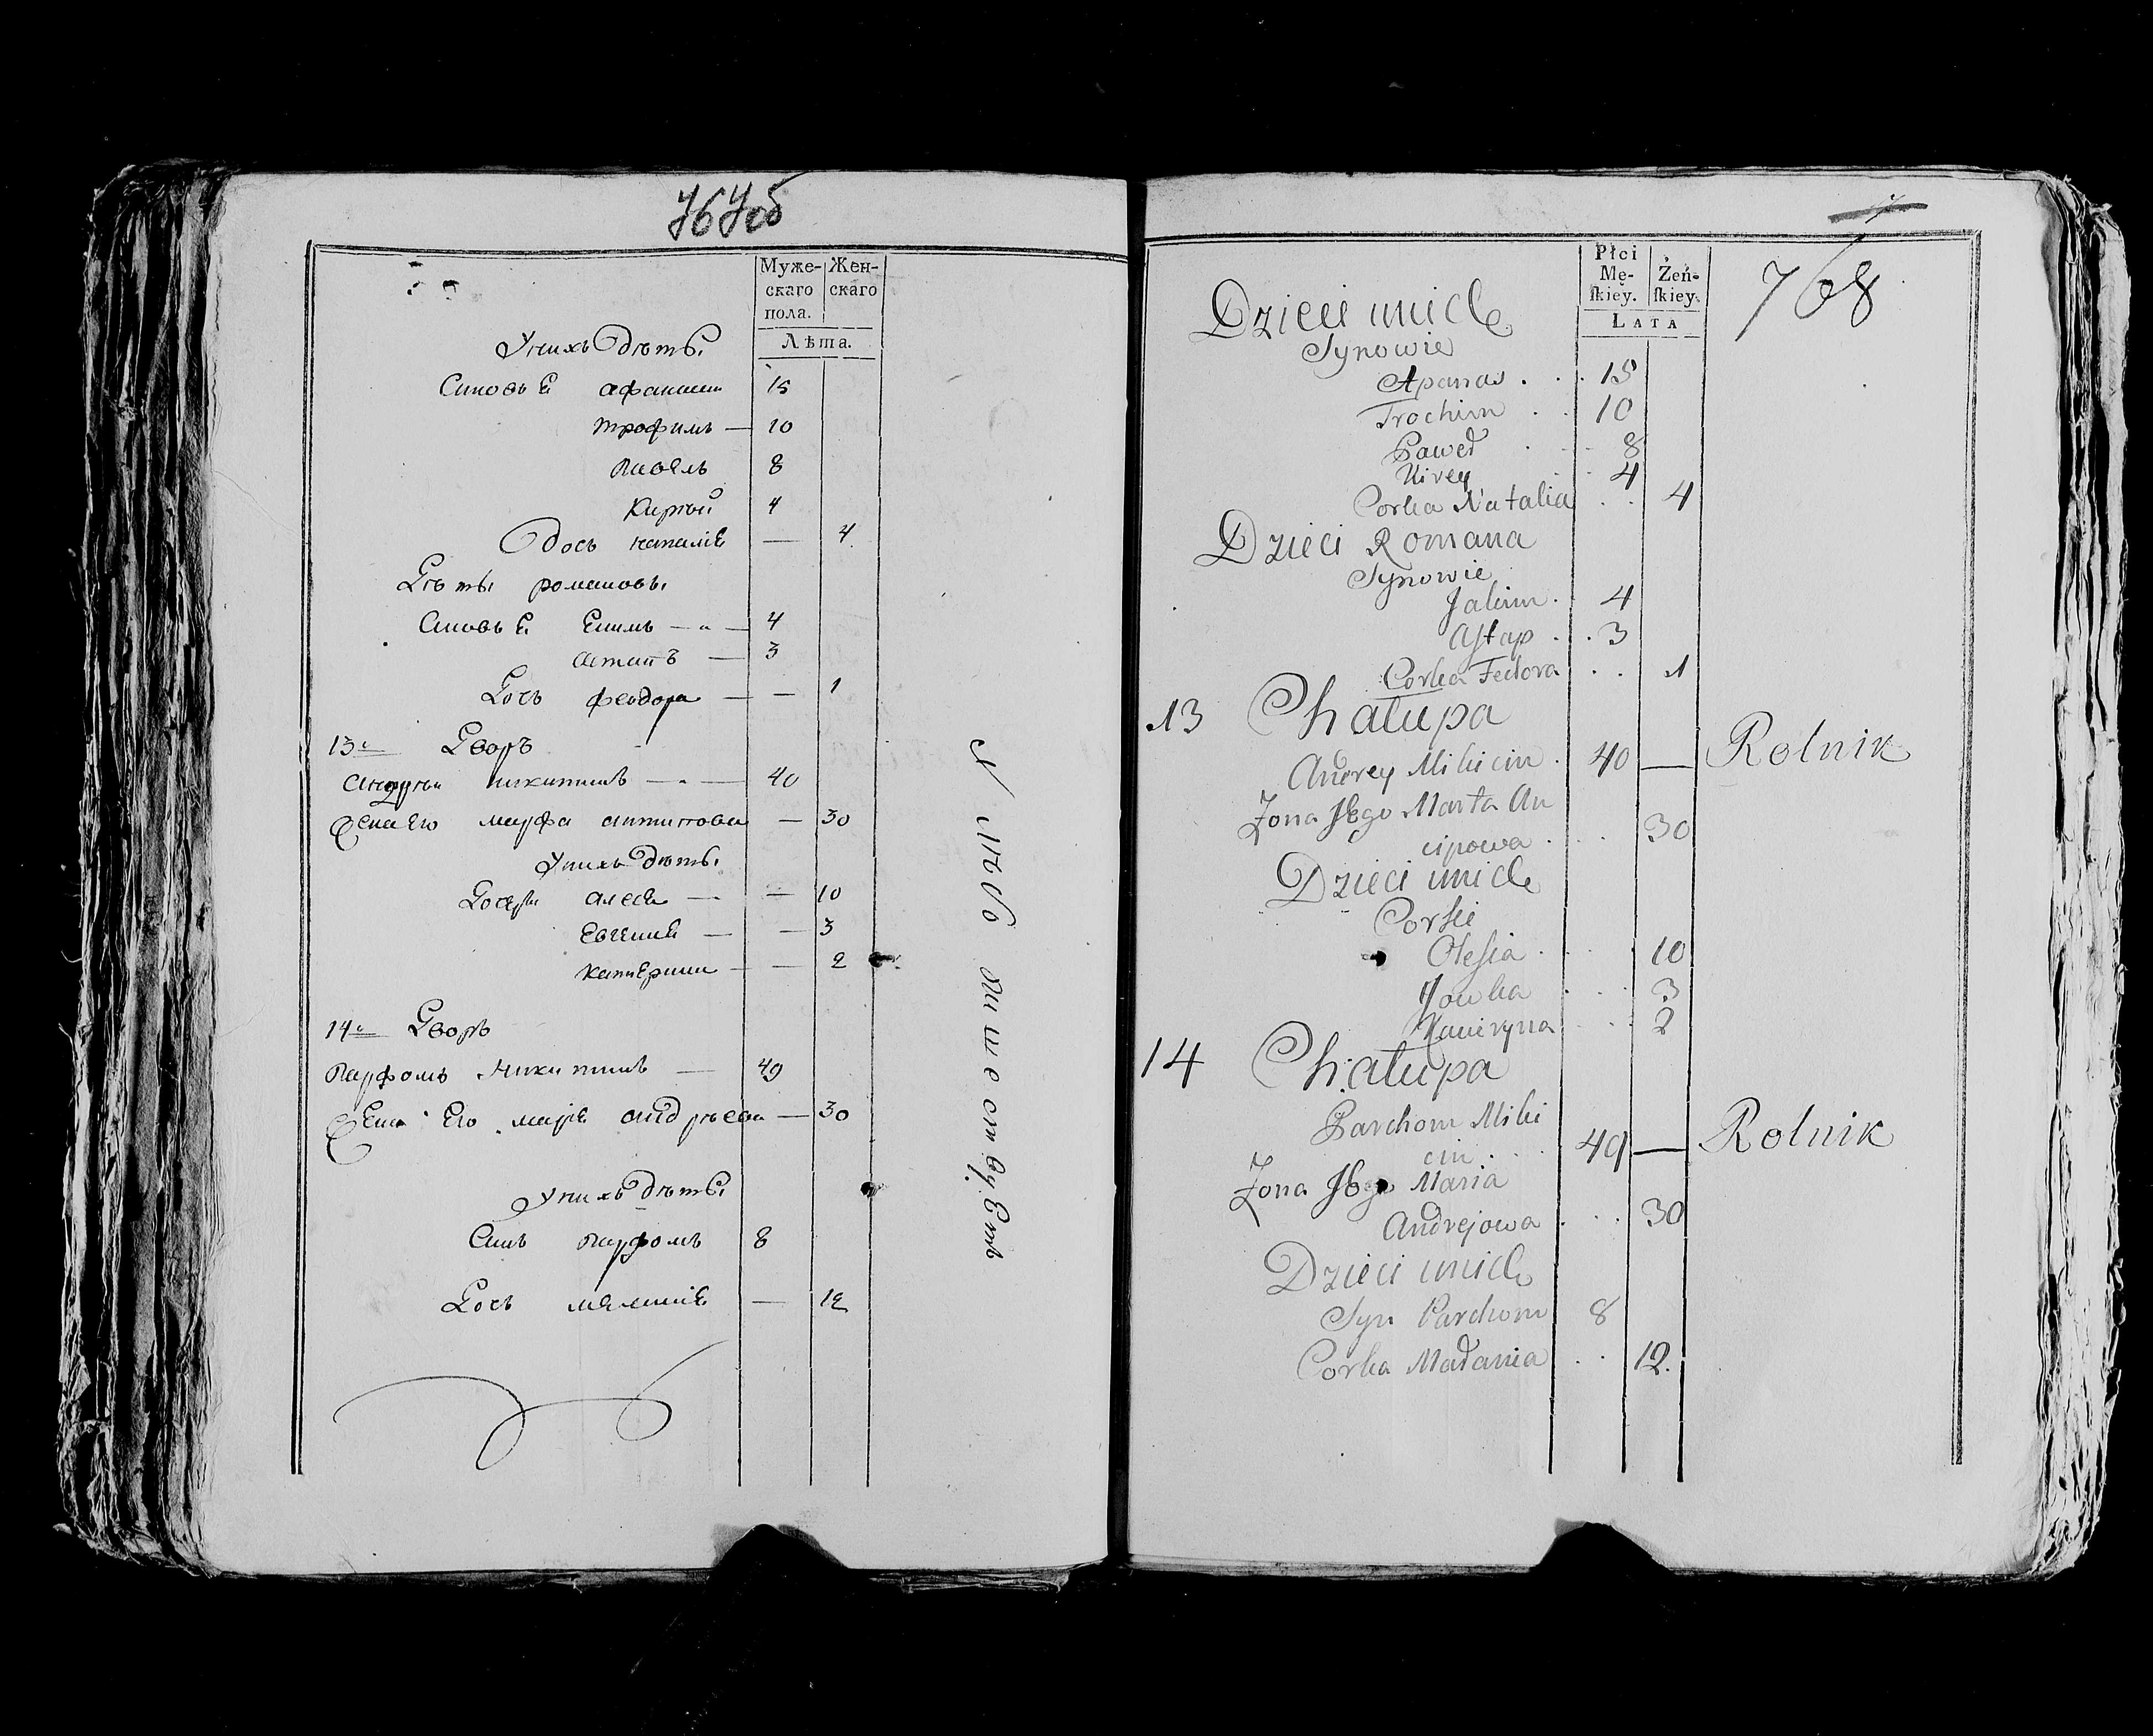 767об
Муже-
скаго
пола.
Жен-
скаго
Лѣта.
Унихъ дѣти.
Синовьѐ афанаси 15
трофимъ — 10
павелъ 8
Кирѣй 4
дочь наталіѐ — 4
Дѣти романовы
Синовьѐ Екимъ — 4
астапъ — 3
Дочь феодора — — 1
13й Дворъ
андрѣи никитинъ — 40
Жена Его марфа антипова — 30
Унихъ дѣти.
Дочери алеся — — 10
Евгение — — 3
катерина — — 2
14й Дворъ
Парфомъ Никитинъ — 49
Жена Его маріѐ андрѣева — 30
Унихъ дѣти
Синъ парфомъ 8
Дочь меланиѐ — 12
768
Płci
Mę-
ſkiey.
Żeń-
ſkiey.
LATA
Dzieci unich
Synowie
Apanas . . . 15
Trochim . . 10
Paweł . . 8
Kirey . . 4
Corka Natalia . . 4
Dzieci Romana
Synowie
Jakim . 4
Astap . . 3
Corka Fedora . . 1
13 Chałupa
Andrey Mikicin . 40 — Rolnik
Zona Jego Marta An
cipowa . . . 30
Dzieci unich
Corki
Olesia . . . 10
Jouka . . . 3
Kacieryna . . . 2
14 Chałupa
Parchom Miki
cin . . . 49 — Rolnik
Zona Jego Maria
Andrejowa . . . 30
Dzieci unich
Syn Parchom 8
Corka Małania . . 12.